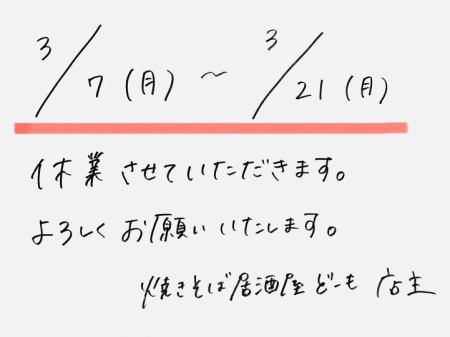 3/7(月)~3/21(月)
休業させていただきます。
よろしくお願いいたします。
焼きそば居酒屋どーも 店主